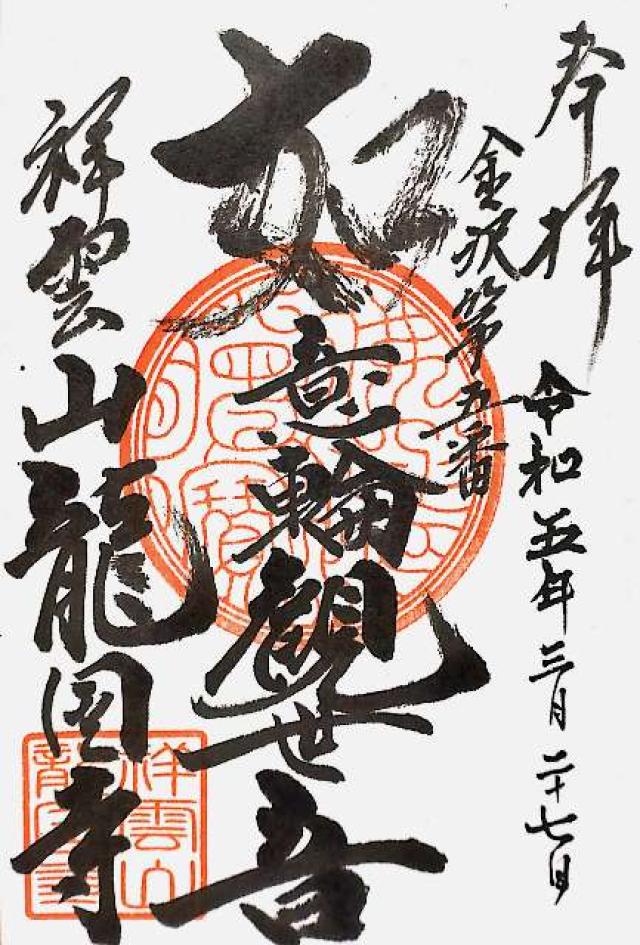 奉拝
令和五年三月二十七日
金沢第五番
如意輪観世音
祥雲山龍国寺
祥雲山